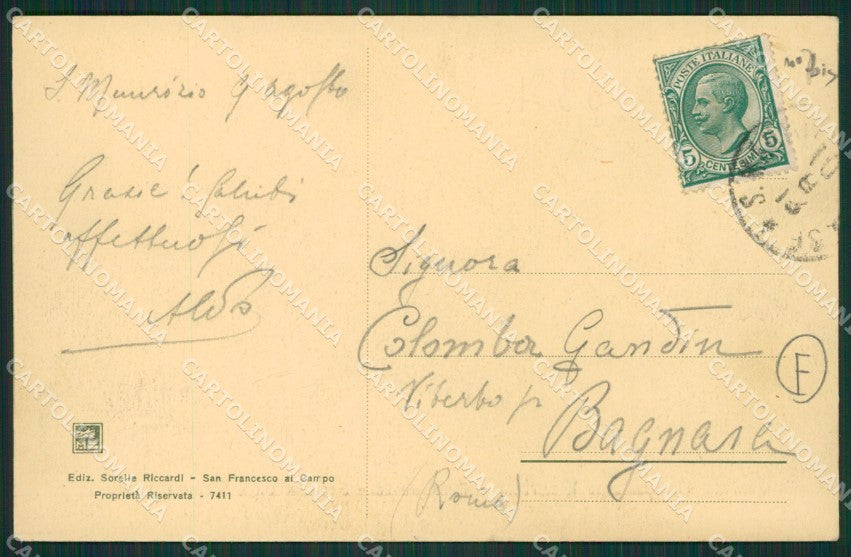 S. Maurizio 9 agosto
Grazie! Saluti
affettuosi
Aldo
Ediz. Sorelle Riccardi - San Francesco al Campo
Proprietà Riservata - 7411
POSTE ITALIANE
5 CENTESIMI 5
Signora
Colomba Gandin
Viterbo pr
Bagnaia
(Roma)
F
CARTOLINOMANIA